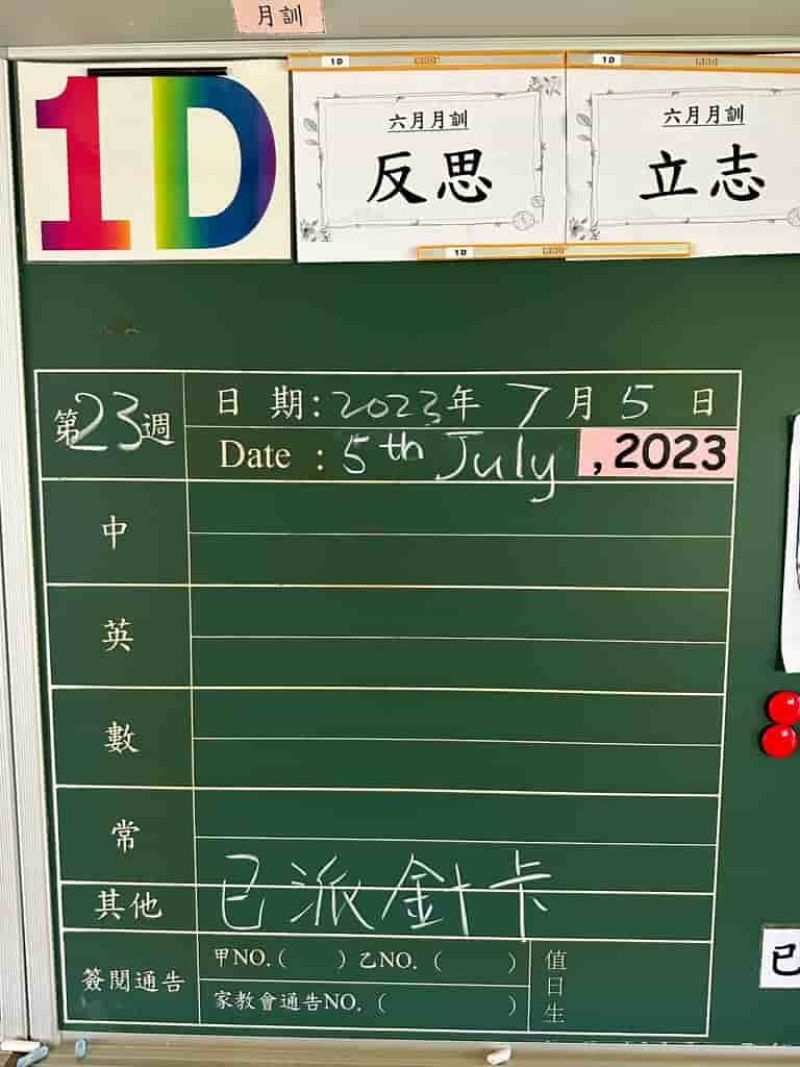 月訓
1D
1D
1D
六月月訓
反思
六月月訓
立志
1D
第23週
日期:2023年7月5日
Date : 5th July , 2023
中
英
數
常
其他 已派針卡
簽閱通告
甲NO.( ) 乙NO. ( )
家教會通告NO. ( )
值日生
已